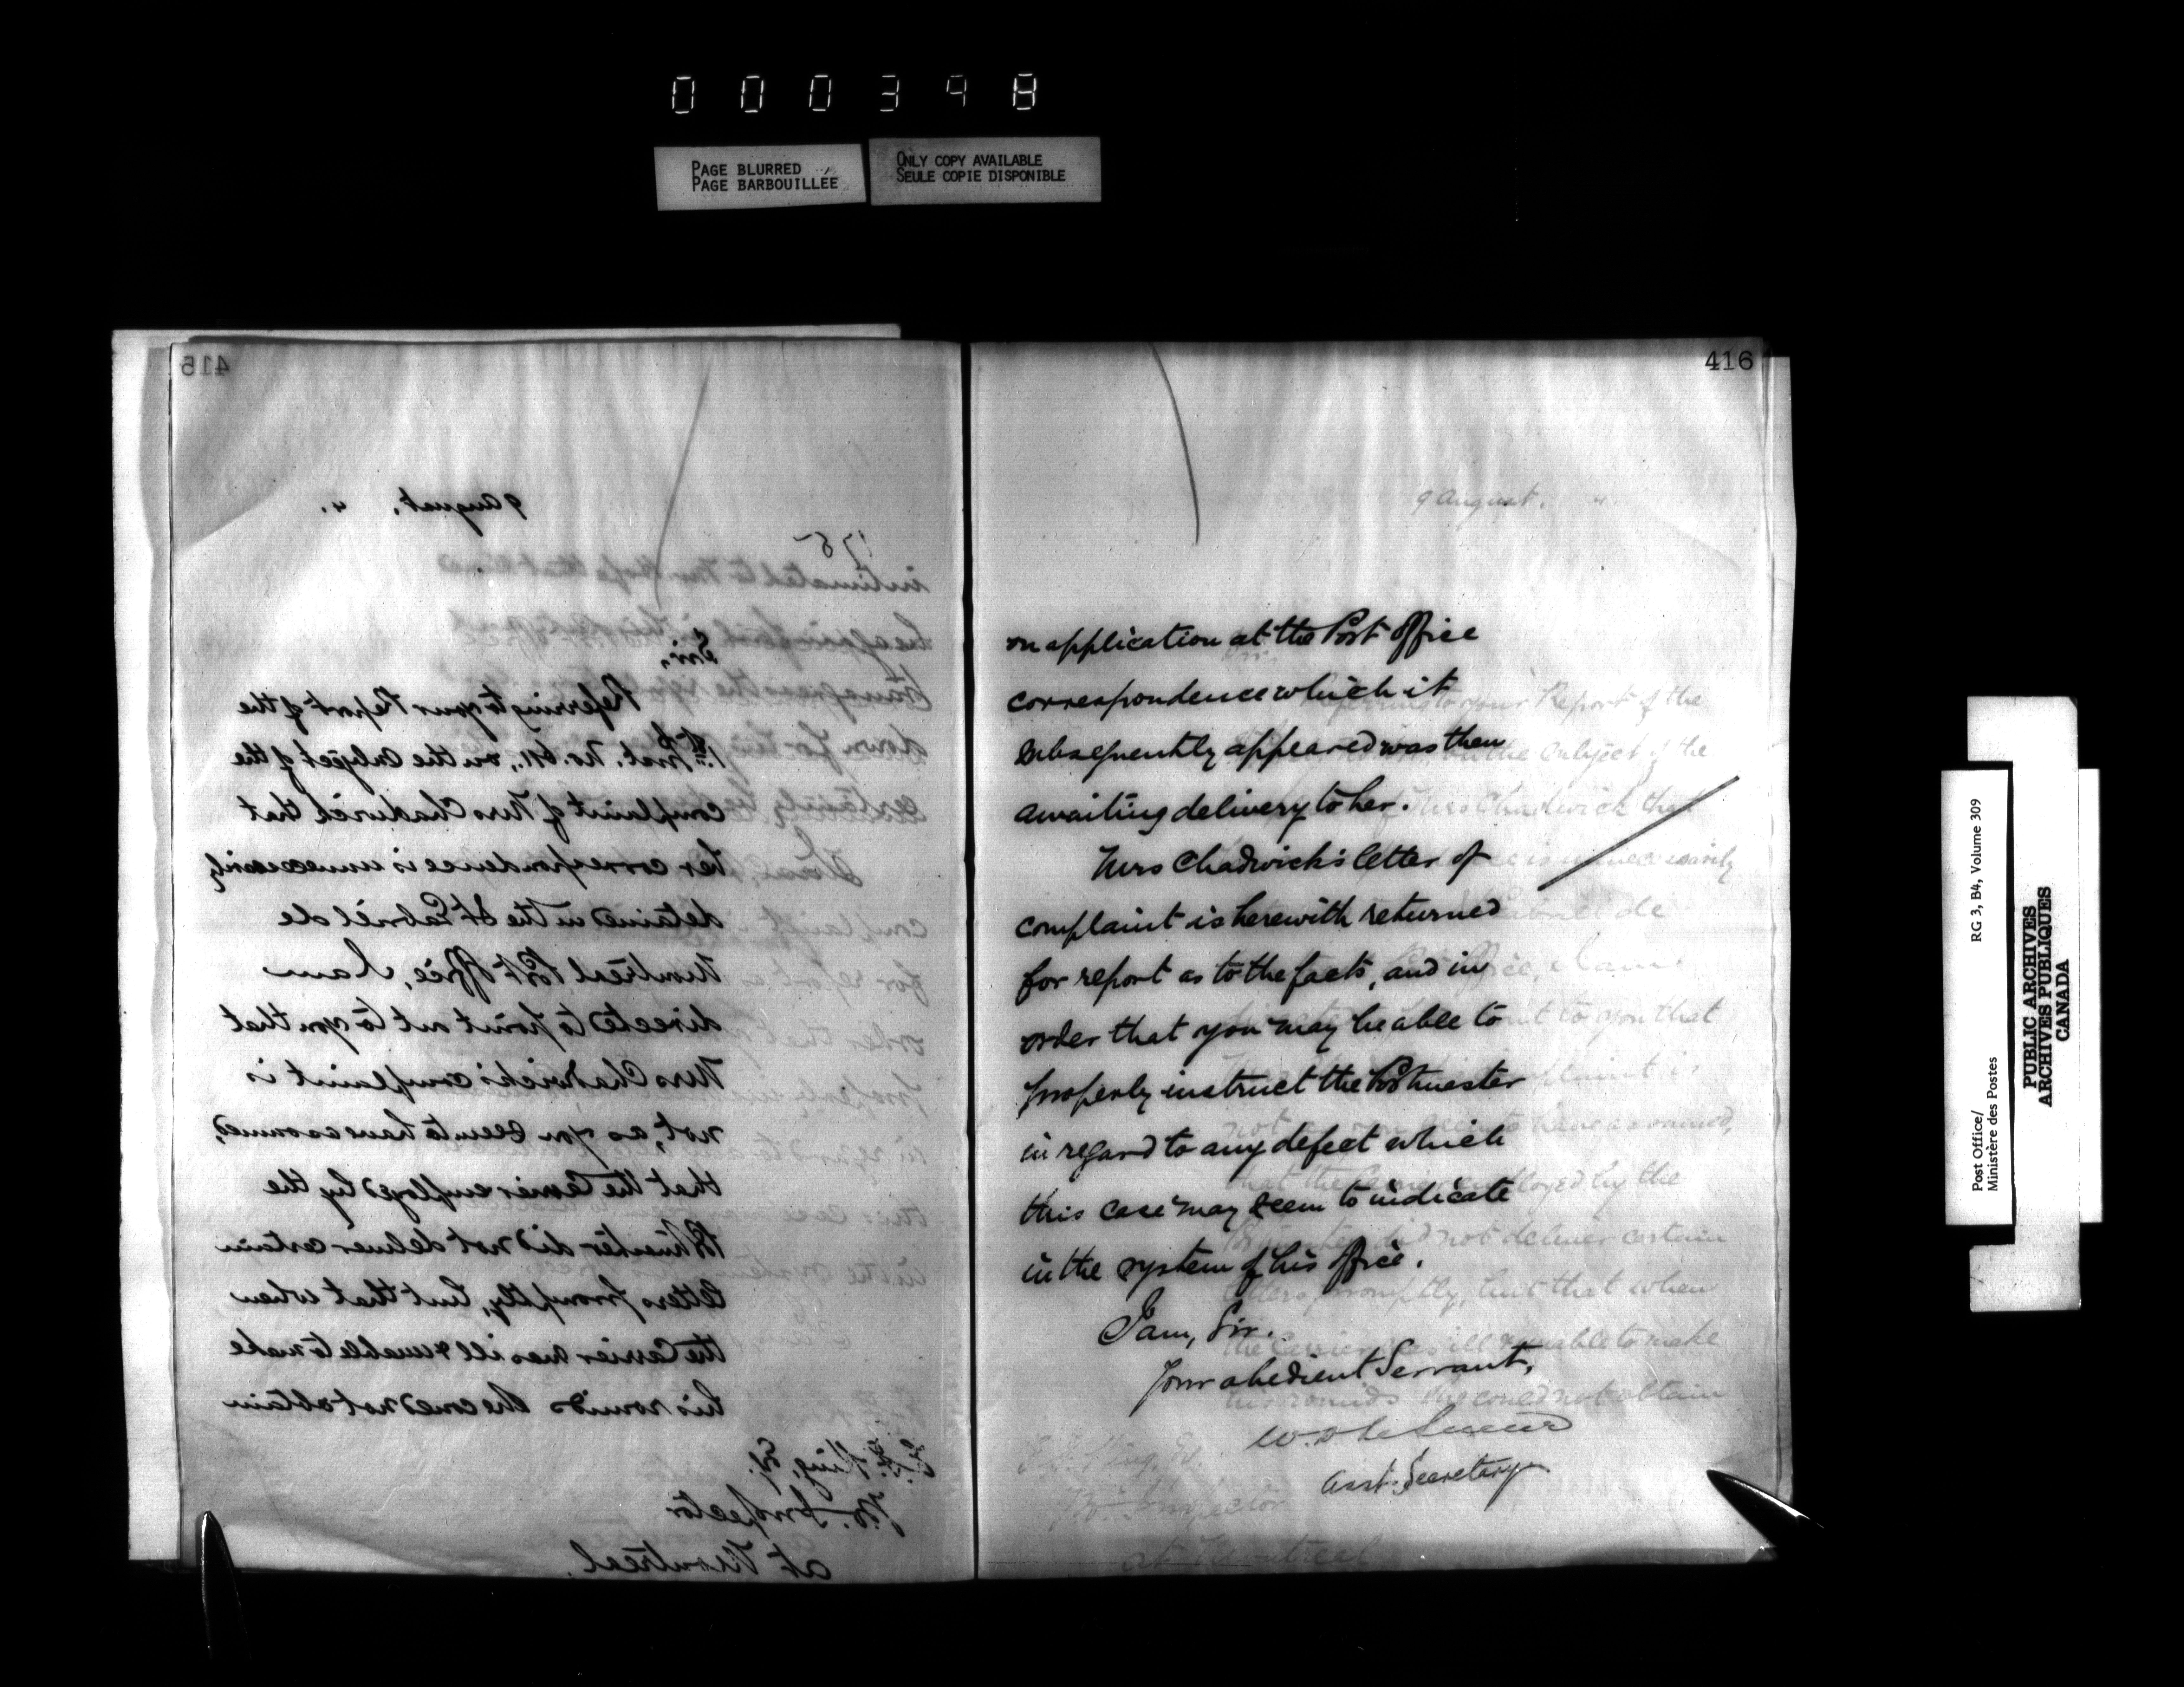 000398
PAGE BLURRED
PAGE BARBOUILLEE
ONLY COPY AVAILABLE
SEULE COPIE DISPONIBLE
415
9 August. 4.
178
Sir,
Referring to your Report of the
1st Inst. No. 611, on the subject of the
complaint of Mrs Chadwick that
her correspondence is unnecessarily
detained in the St Gabriel de
Montreal Post Office, I am
directed to point out to you that
Mrs Chadwick's complaint is
not, as you seem to have assumed,
that the Carrier employed by the
Postmaster did not deliver certain
letters promptly, but that when
the Carrier was ill & unable to make
his rounds she could not obtain
King, Esq.
P.O. Inspector
at Montreal.
416
on application at the Post Office
correspondence which it
subsequently appeared was then
awaiting delivery to her.
Mrs Chadwick's letter of
complaint is herewith returned
for report as to the facts, and in
order that you may be able to
properly instruct the Postmaster
in regard to any defect which
this case may seem to indicate
in the system of his office.
I am, Sir.
Your obedient Servant,
W. D. LeSueur
Asst. Secretary
Post Office/
Ministère des Postes
RG 3, B4, Volume 309
PUBLIC ARCHIVES
ARCHIVES PUBLIQUES
CANADA